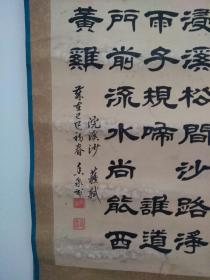 浸溪松間沙路淨
雨子規啼誰道
門前流水尚能西
黃雞
浣溪沙 蘇軾
歲在己巳